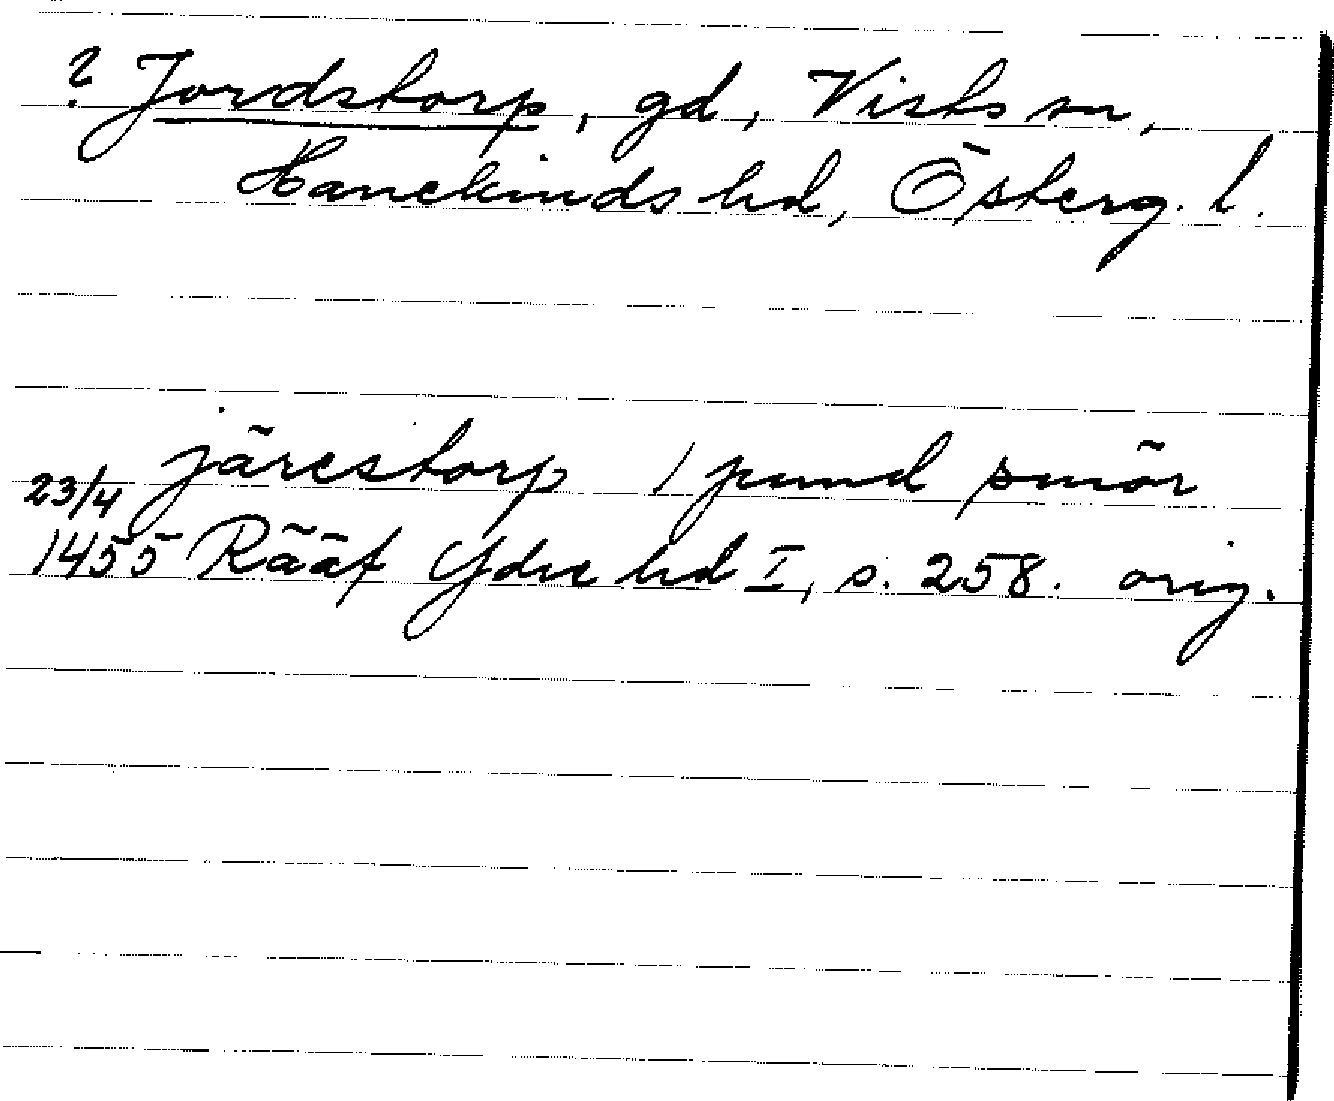 ? Jordstorp, gd, Vists sn,
Hanekinds hd, Österg. l.
järestorp 1 pund smör
23/4
1455 Rääf Ydre hd I, s. 258. orig.